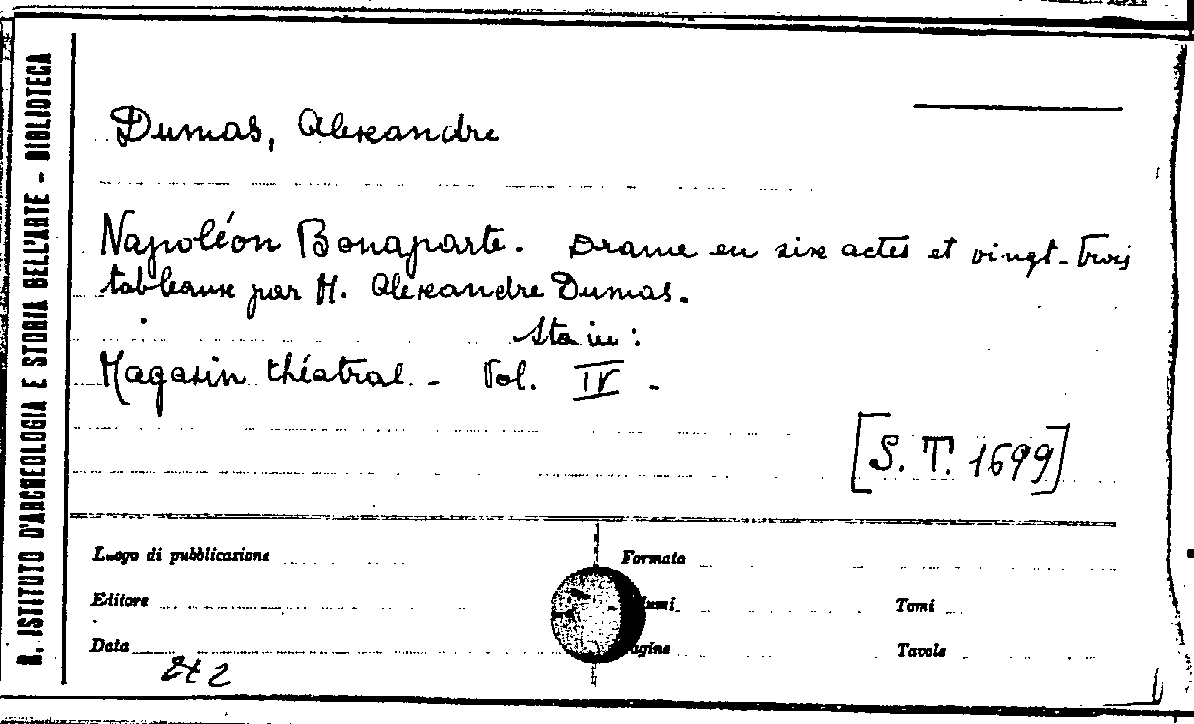 R. ISTITUTO D'ARCHEOLOGIA E STORIA DELL'ARTE - BIBLIOTECA
Dumas, Alexandre
Napoléon Bonaparte. Drame en six actes et vingt-trois
tableaux par M. Alexandre Dumas.
Sta in:
Magasin théatral. - Vol. IV -
[S. T. 1699]
Luogo di pubblicazione
Formato
Editore
Tomi
Data
Tavole